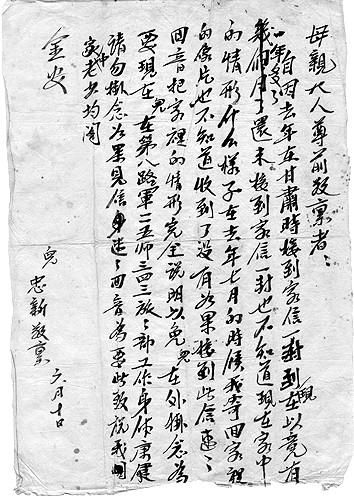 母親大人尊前敬稟者：
自因去年在甘肅時接到家信一封到現在以竟有
一年多了
幾個月了還未接到家信一封也不知道現在家中
的情形什么樣子在去年七月的時候我寄回家裡
的像片也不知道收到了沒有如果接到此信速速
回音把家裡的情形完全說明以免兒在外掛念為
要現在兒在第八路軍一一五師三四三旅旅部工作身体康健
請勿掛念如果見信身速速回音為要此敬祝我國
家中老少均閤
金安
兒 忠新敬稟 六月十日